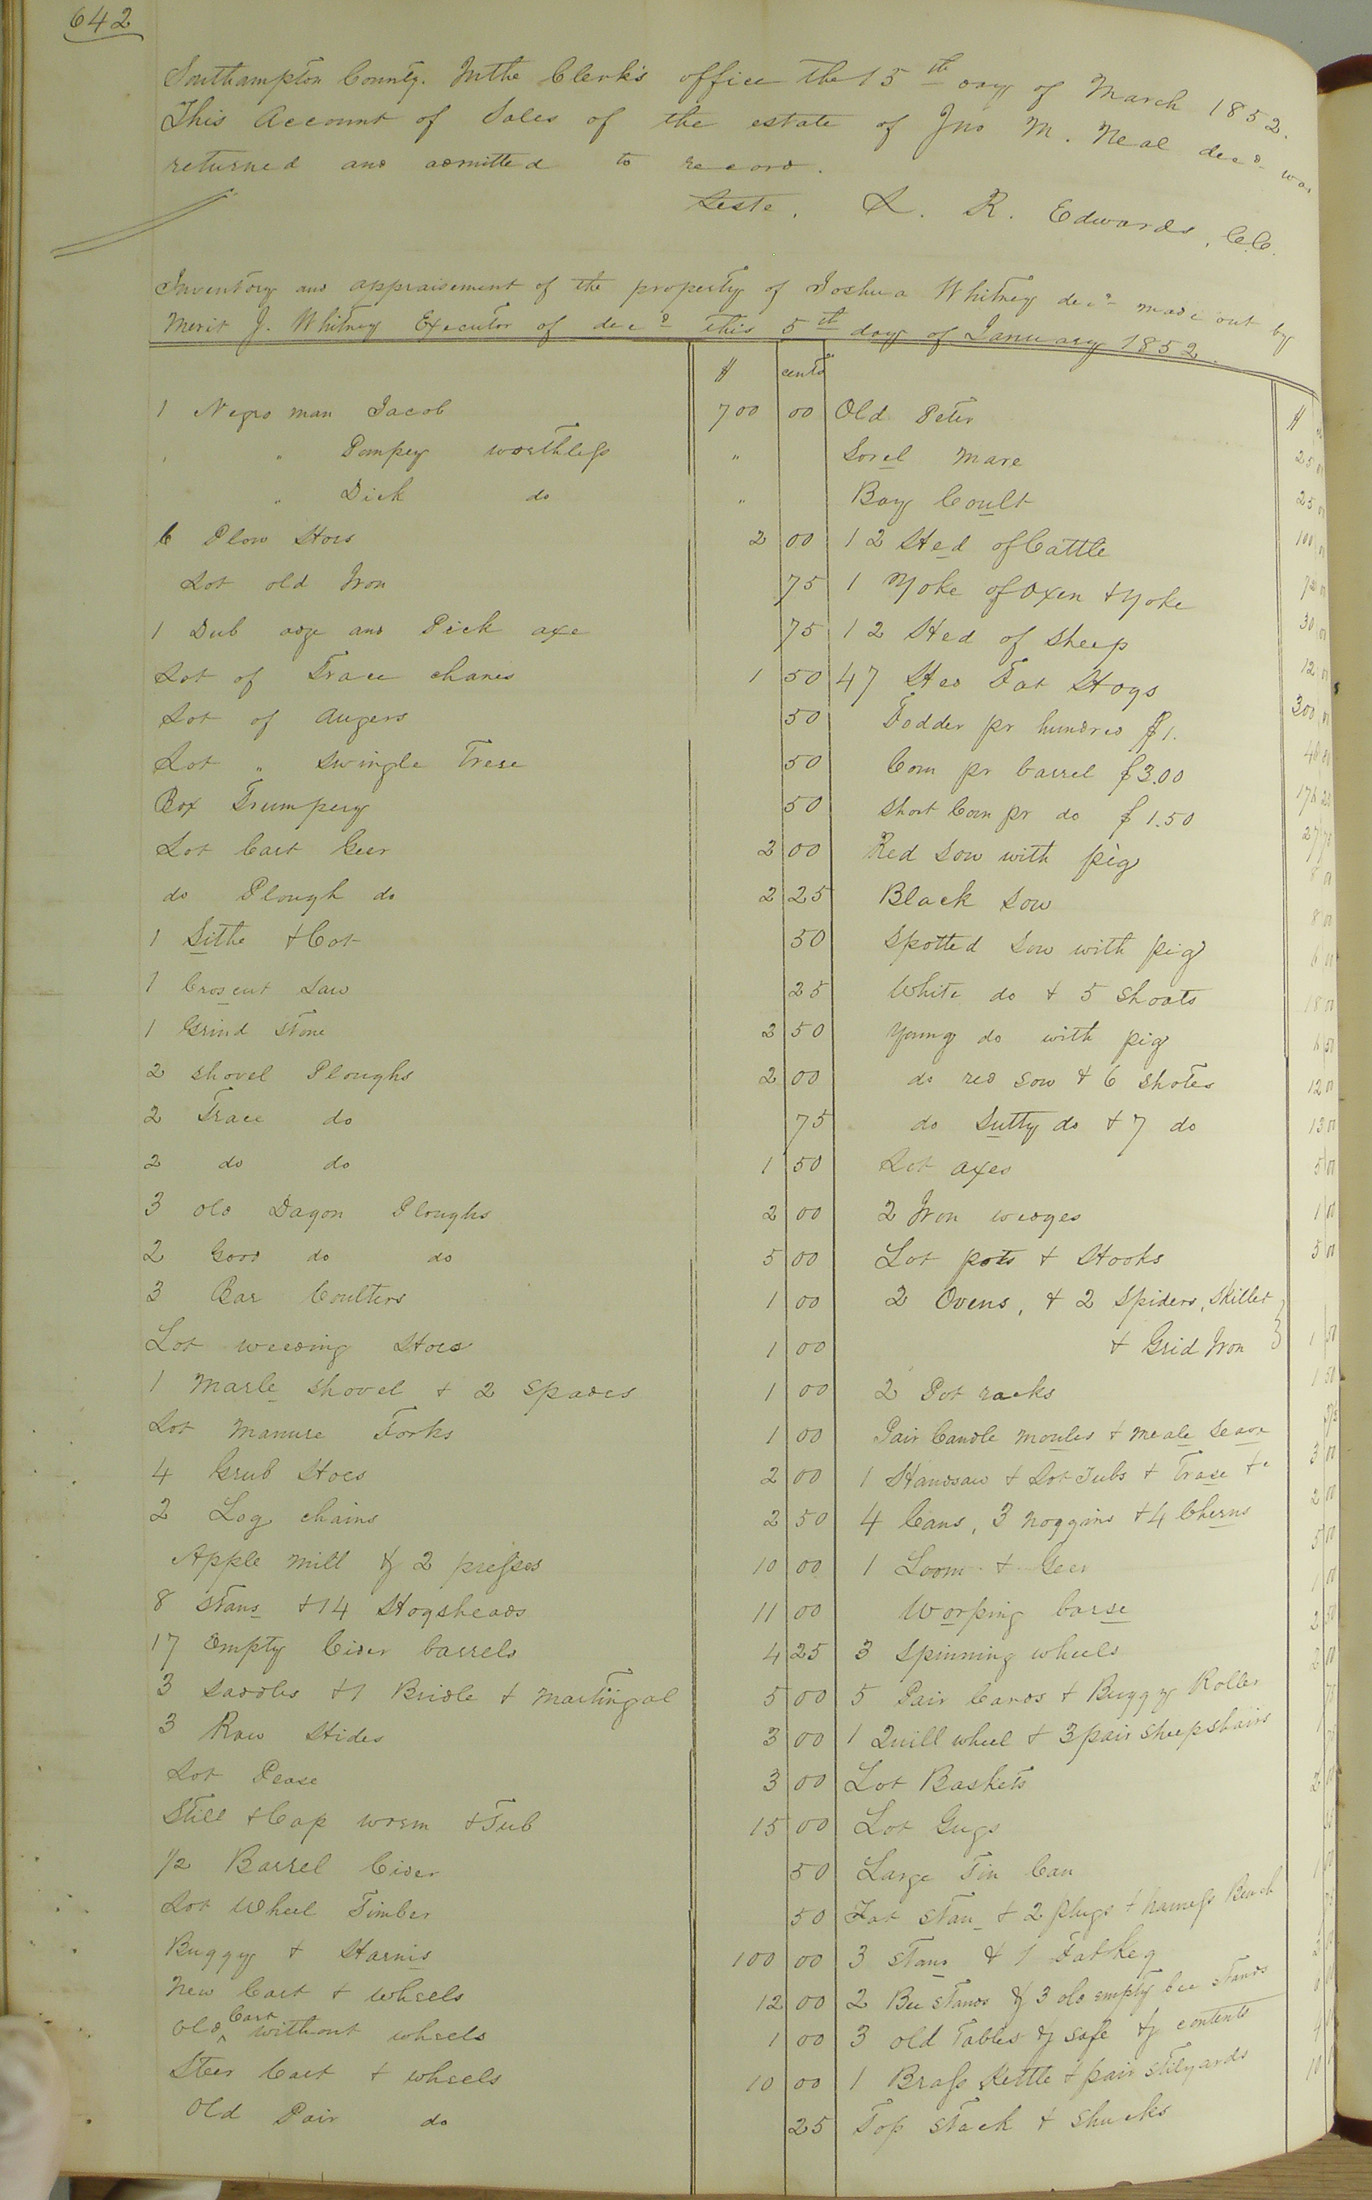 642
Southampton County. In the Clerk's office the 15th day of March 1852.
This Account of Sales of the estate of Jno M. Neal decd was
returned and admitted to record.
Teste. L. R. Edwards, C.C.
Inventory and appraisement of the property of Joshua Whitney decd made out by
Merit J. Whitney Executor of decd this 5th day of January 1852.
$ cents
1 Negro man Jacob 700 00
" Pompey worthless "
" Dick do "
6 Plow Hoes 2 00
Lot old Iron 75
1 Dub adze and Pick axe 75
Lot of Trace chanes 1 50
Lot of Augers 50
Lot " Swingle Trese 50
Box Trumpery 50
Lot Cart Geer 2 00
do Plough do 2 25
1 Sithe & Cot 50
1 Croscut Saw 25
1 Grind Stone 2 50
2 shovel Ploughs 2 00
2 Trace do 75
2 do do 1 50
3 old Dagon Ploughs 2 00
2 Good do do 5 00
3 Bar Coulters 1 00
Lot weeding Hoes 1 00
1 Marle shovel & 2 Spades 1 00
Lot Manure Forks 1 00
4 Grub Hoes 2 00
2 Log chains 2 50
Apple Mill & 2 presses 10 00
8 Stans & 14 Hogsheads 11 00
17 Empty Cider barrels 4 25
3 Saddles & 1 Bridle & Martingal 5 00
3 Raw Hides 3 00
Lot Pease 3 00
Still & Cap worm & Tub 15 00
1/2 Barrel Cider 50
Lot Wheel Timber 50
Buggy & Harnis 100 00
New Cart & wheels 12 00
Old Cart without wheels 1 00
Steer Cart & wheels 10 00
Old Pair do 25
$
Old Peter 25 00
Sorel Mare 25 00
Bay Coult 100 00
12 Hed of Cattle
1 Yoke of Oxen & Yoke 30 00
12 Hed of Sheep 12 00
47 Hed Fat Hogs 300 00
Fodder pr hundred $1.
Corn pr barrel $3.00
Short Corn pr do $1.50
Red Sow with pig 8 00
Black Sow 8 00
Spotted Sow with pig 6 00
White do & 5 Shoats 18 00
Young do with pig 6 50
do red Sow & 6 Shotes 12 00
do Sutty do & 7 do 13 00
Lot axes 5 00
2 Iron wedges 1 00
Lot pots & Hooks 5 00
2 Ovens, & 2 Spiders, Skillet
& Grid Iron 1 50
2 Pot racks 1 50
Pair Candle moules & meale Seave
1 Handsaw & Lot Tubs & Trase &c 3 00
4 Cans, 3 noggins & 4 Cherns 2 00
1 Loom & Geer 5 00
Worping barse 1 00
3 Spinning wheels 2 50
5 Pair Cards & Buggy Roller 2 00
1 Quill wheel & 3 pair sheep shairs
Lot Baskets
Lot Gugs
Large Tin Can
Fat Stan & 2 plugs & harness Bench
3 Stans & 1 Fat Keg
2 Bee stands & 3 old empty bee stands
3 old Tables & safe & contents
1 Brass Kettle & pair Stilyards
Top Stack & Shucks